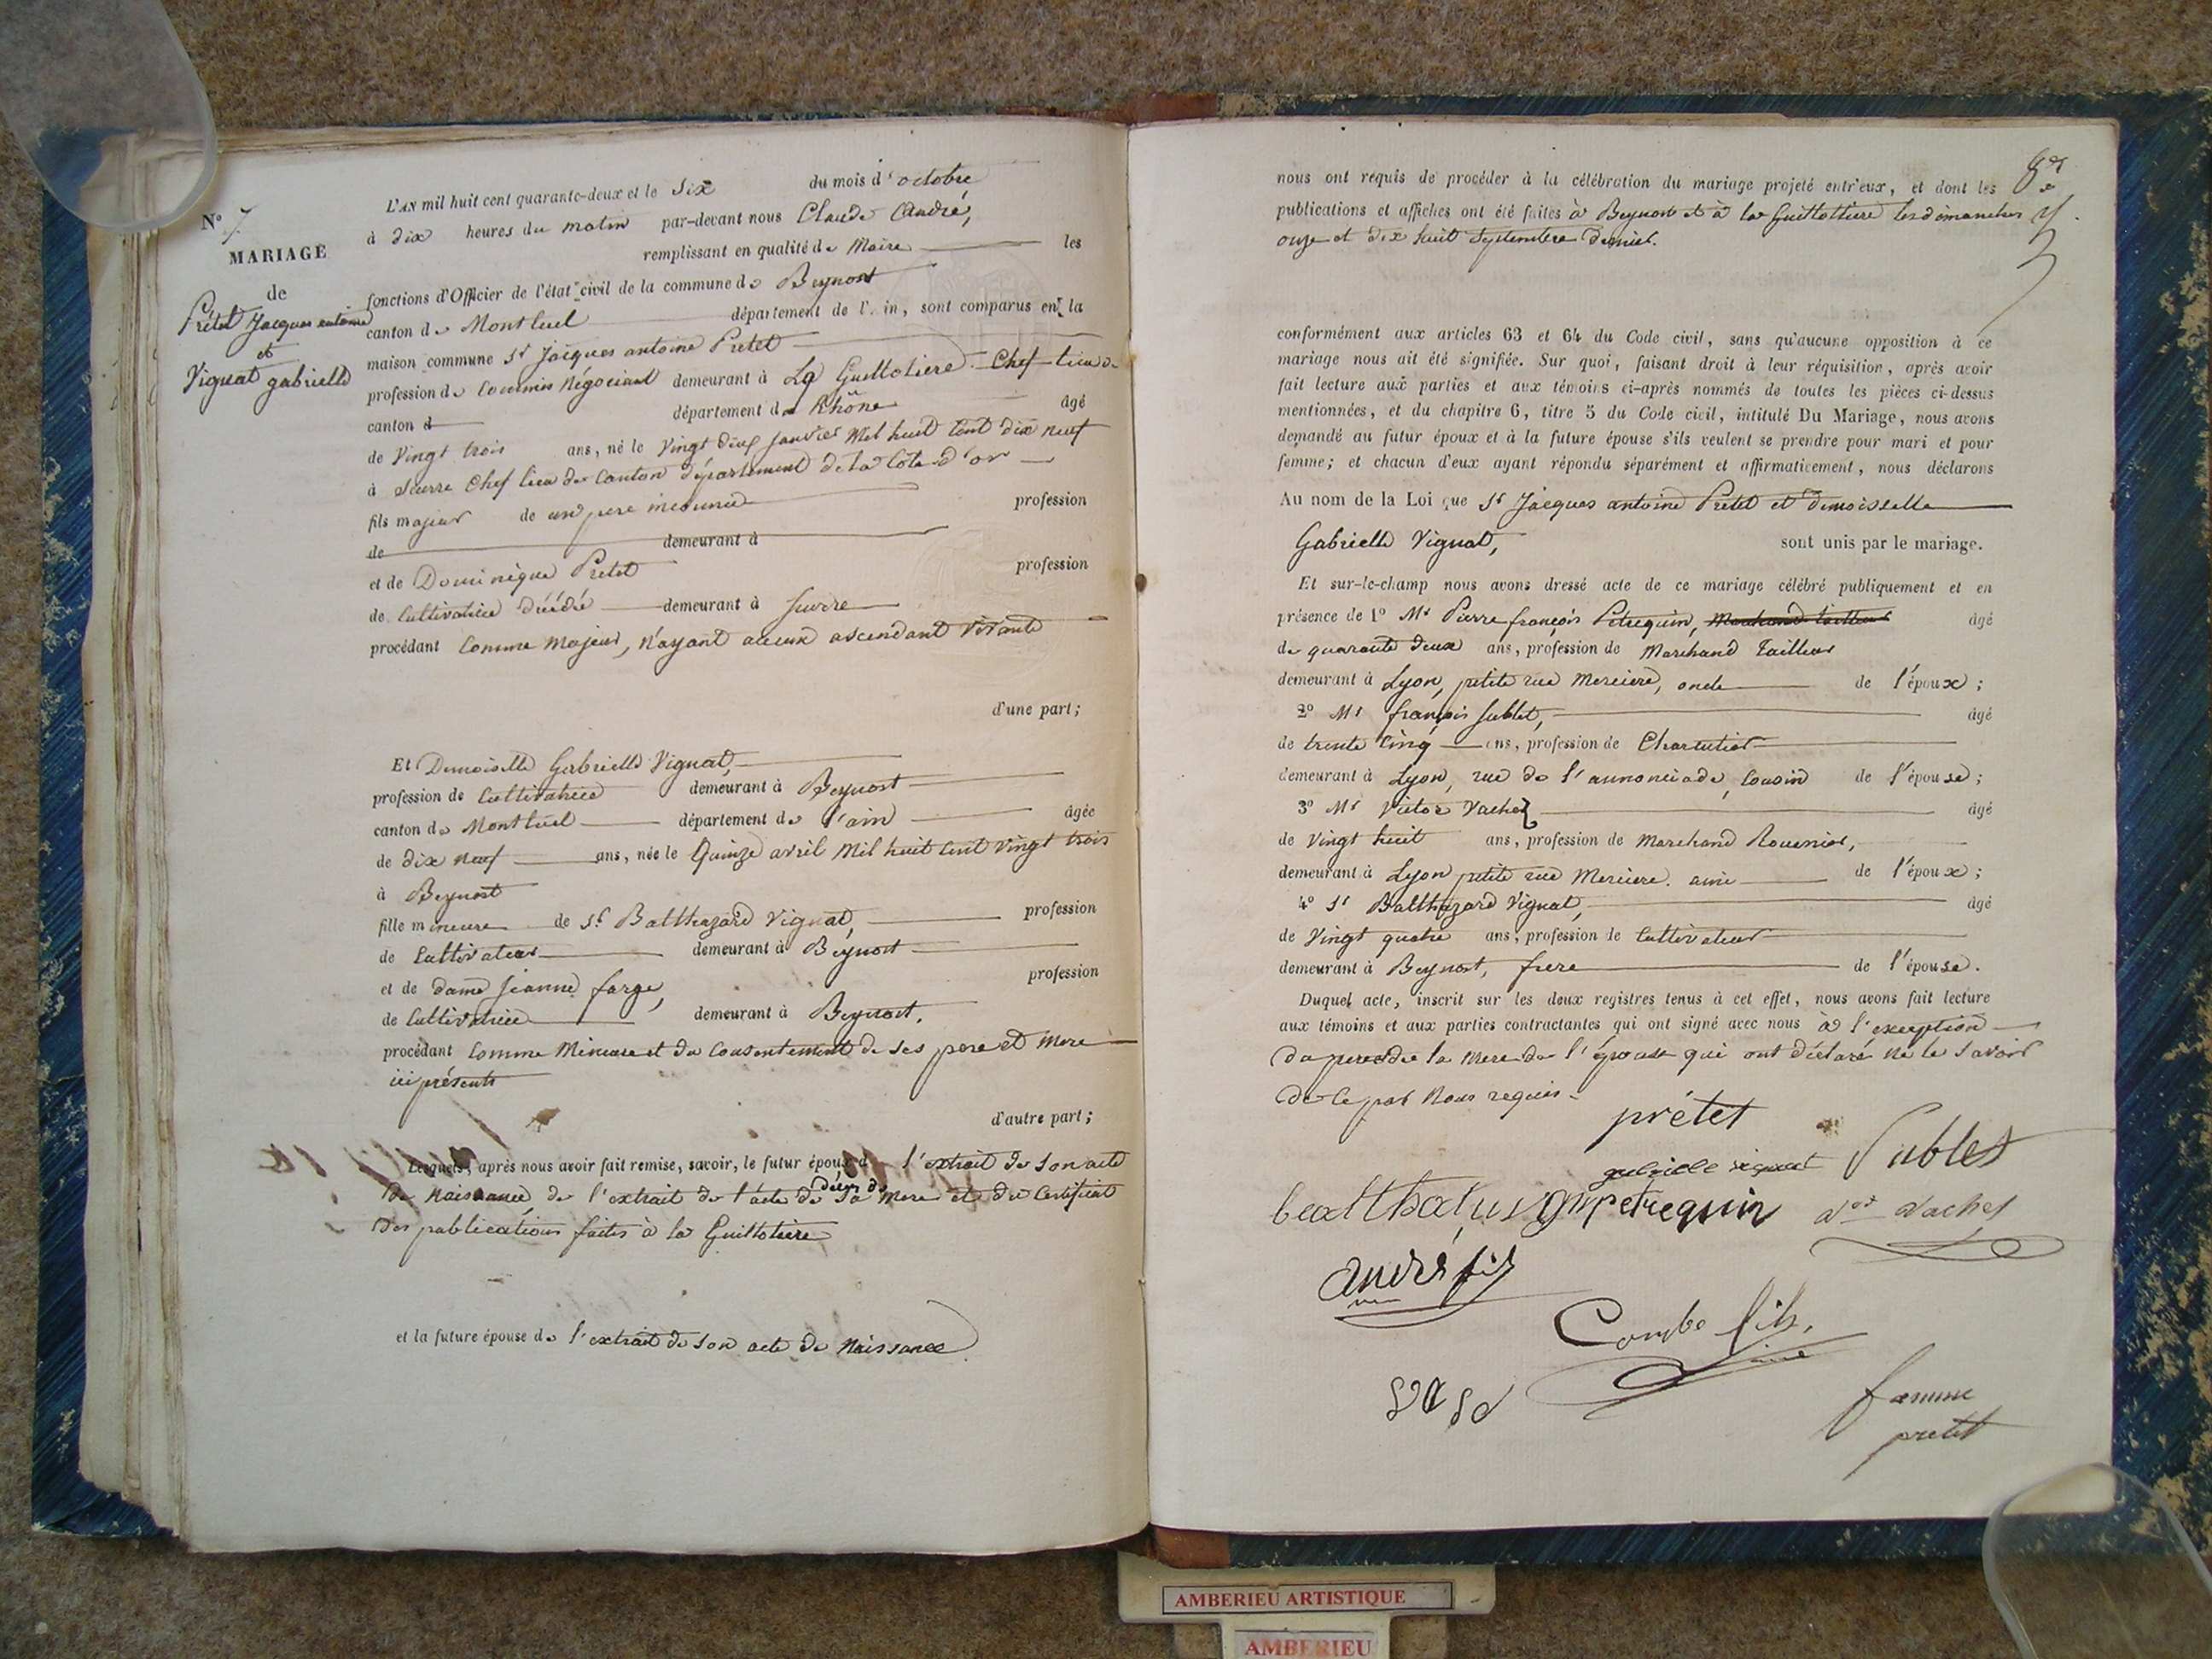 N° 7
MARIAGE
de
Prétet Jacques antoine
et
Vignat gabrielle
L'AN mil huit cent quarante-deux et le Six du mois d'octobre
à dix heures du matin par-devant nous Claude André,
remplissant en qualité de Maire les
fonctions d'Officier de l'état civil de la commune de Beynost
canton de Montluel département de l'Ain, sont comparus en la
maison commune Sr Jacques antoine Pretet
profession de Commis Négociant demeurant à La Guillotiere Chef lieu de
canton d département de Rhône âgé
de Vingt trois ans, né le Vingt janvier Mil huit Cent dix neuf
à Seurre Chef lieu de Canton département de la Cote d'or
fils majeur de un pere inconnu profession
de demeurant à
et de Dominique Pretet profession
de Cultivatrice décédée demeurant à Seurre
procédant Comme Majeur, n'ayant aucun ascendant vivant
d'une part;
Et Demoiselle Gabrielle Vignat,
profession de Cultivatrice demeurant à Beynost
canton de Montluel département de l'ain âgée
de dix neuf ans, née le Quinze avril Mil huit Cent Vingt trois
à Beynost
fille mineure de Sr Balthazard Vignat, profession
de Cultivateur demeurant à Beynost
et de dame Jeanne farge, profession
de Cultivatrice demeurant à Beynost,
procédant Comme Mineure et du Consentement de ses pere et mere
ici présents
d'autre part;
Lesquels, après nous avoir fait remise, savoir, le futur époux d l'extrait de son acte
de Naissance, de l'extrait de l'acte de décès de sa mere et du Certificat
des publications faites à la Guillotiere
et la future épouse de l'extrait de son acte de Naissance
nous ont requis de procéder à la célébration du mariage projeté entr'eux, et dont les
publications et affiches ont été faites à Beynost et à la Guillottiere les dimanches
onze et dix huit Septembre dernier.
conformément aux articles 63 et 64 du Code civil, sans qu'aucune opposition à ce
mariage nous ait été signifiée. Sur quoi, faisant droit à leur réquisition, après avoir
fait lecture aux parties et aux témoins ci-après nommés de toutes les pièces ci-dessus
mentionnées, et du chapitre 6, titre 5 du Code civil, intitulé Du Mariage, nous avons
demandé au futur époux et à la future épouse s'ils veulent se prendre pour mari et pour
femme; et chacun d'eux ayant répondu séparément et affirmativement, nous déclarons
Au nom de la Loi que Sr Jacques antoine Pretet et demoisselle
Gabrielle Vignat, sont unis par le mariage.
Et sur-le-champ nous avons dressé acte de ce mariage célébré publiquement et en
présence de 1° Mr Pierre françois Petrequin, Marchand tailleur âgé
de quarante deux ans, profession de Marchand Tailleur
demeurant à Lyon, petite rue Merciere, oncle de l'époux;
2° Mr françois Sublet, âgé
de trente Cinq ans, profession de Charcutier
demeurant à Lyon, rue de l'annonciade, Cousin de l'épouse;
3° Mr Victor Vachez âgé
de Vingt huit ans, profession de Marchand Rouennier,
demeurant à Lyon petite rue Merciere. ami de l'époux;
4° Sr Balthazard Vignat, âgé
de Vingt quatre ans, profession de Cultivateur
demeurant à Beynost, frere de l'épouse.
Duquel acte, inscrit sur les deux registres tenus à cet effet, nous avons fait lecture
aux témoins et aux parties contractantes qui ont signé avec nous à l'exception
du pere de la Mere de l'épouse qui ont déclaré ne le savoir
de Ce par Nous requis.
prétet
gabrielle vignat Sublet
petrequin
Vachez
andré fils
Combe fils,
famme
pretet
AMBERIEU ARTISTIQUE
AMBERIEU